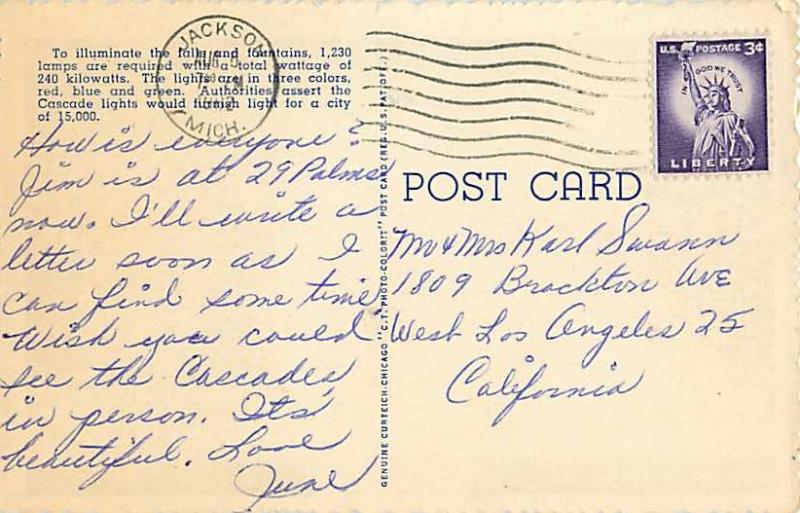 To illuminate the falls and fountains, 1,230
lamps are required with a total wattage of
240 kilowatts. The lights are in three colors,
red, blue and green. Authorities assert the
Cascade lights would furnish light for a city
of 15,000.
JACKSON
MICH.
U.S. POSTAGE 3¢
IN GOD WE TRUST
LIBERTY
How is everyone?
Jim is at 29 Palms
now. I'll write a
letter soon as I
can find some time.
Wish you could
see the Cascades
in person. Its
beautiful. Love
June
GENUINE CURTEICH-CHICAGO "C.T. PHOTO-COLORIT" POST CARD (REG. U.S. PAT. OFF.)
POST CARD
Mr & Mrs Karl Swann
1809 Brockton Ave
West Los Angeles 25
California